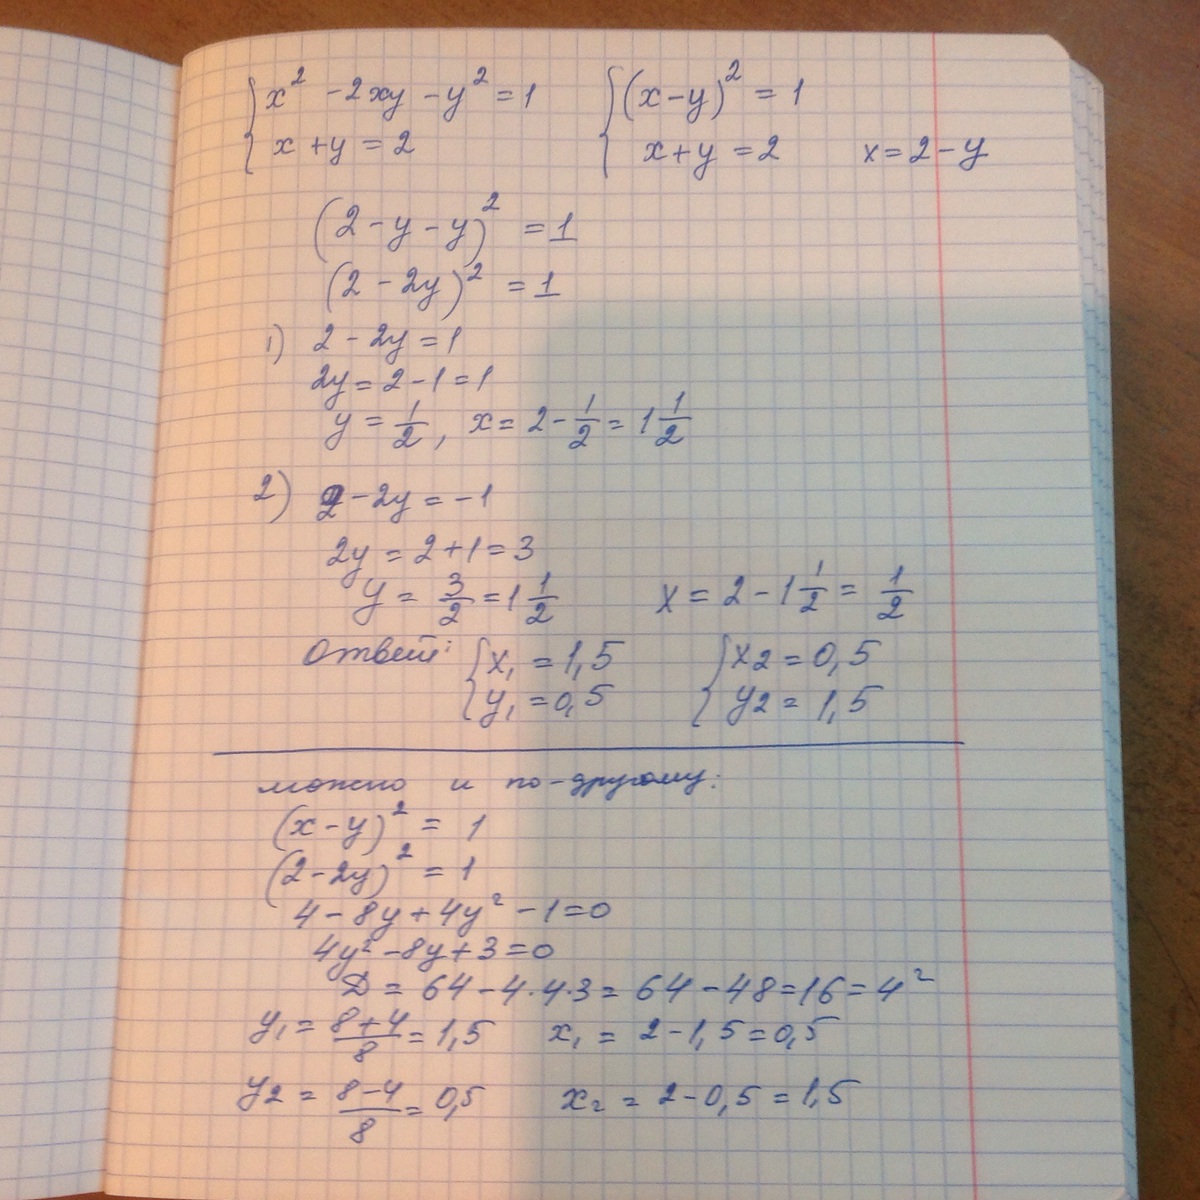 { x² - 2xy - y² = 1    { (x - y)² = 1
x + y = 2    x + y = 2    x = 2 - y
(2 - y - y)² = 1
(2 - 2y)² = 1
1) 2 - 2y = 1
2y = 2 - 1 = 1
y = 1/2, x = 2 - 1/2 = 1 1/2
2) 2 - 2y = -1
2y = 2 + 1 = 3
y = 3/2 = 1 1/2    x = 2 - 1 1/2 = 1/2
Ответ: { x₁ = 1,5    { x2 = 0,5
y₁ = 0,5    y2 = 1,5
можно и по-другому:
(x - y)² = 1
(2 - 2y)² = 1
4 - 8y + 4y² - 1 = 0
4y² - 8y + 3 = 0
D = 64 - 4·4·3 = 64 - 48 = 16 = 4²
y₁ = 8+4/8 = 1,5    x₁ = 2 - 1,5 = 0,5
y2 = 8-4/8 = 0,5    x₂ = 2 - 0,5 = 1,5